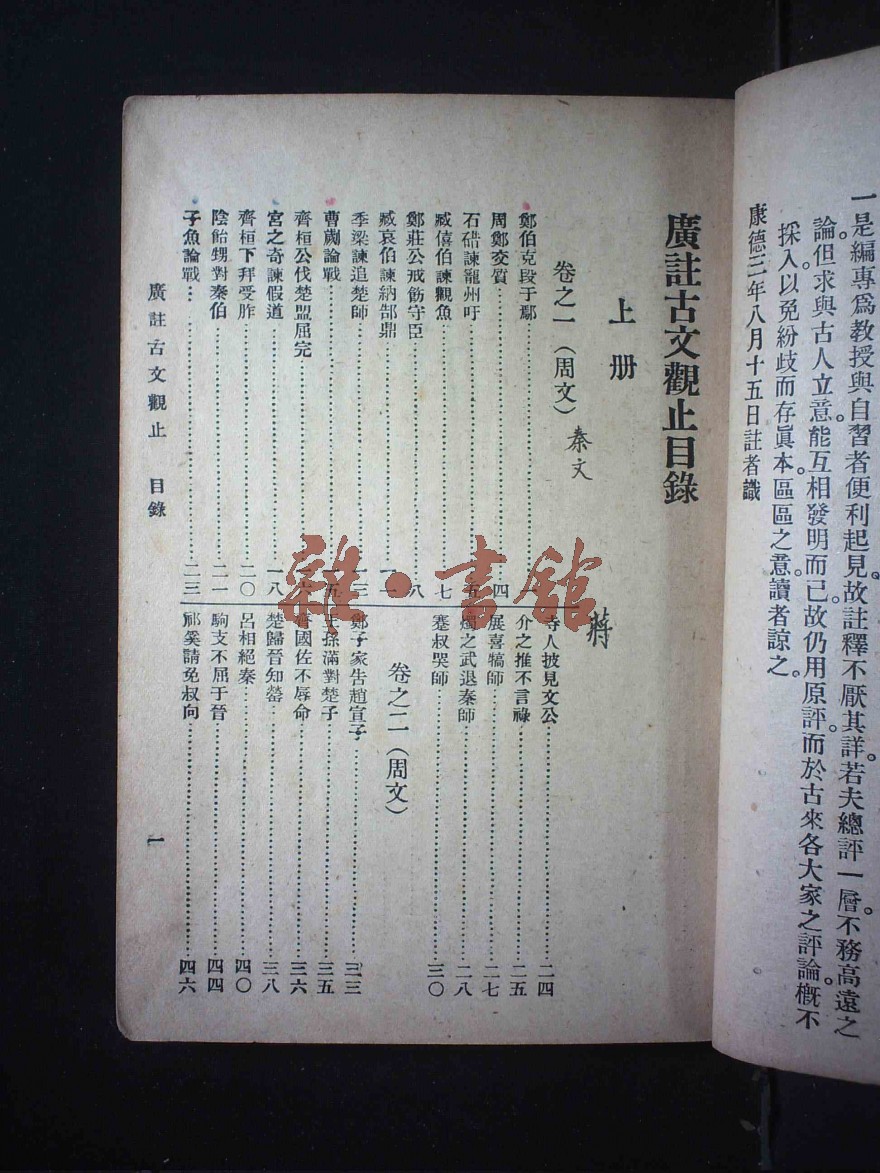 一是編專爲教授與自習者便利起見。故註釋不厭其詳若夫總評一層。不務高遠之
論。但求與古人立意。能互相發明而已。故仍用原評而於古來各大家之評論。槪不
採入以免紛歧而存眞本。區區之意讀者諒之。
康德三年八月十五日註者識
廣註古文觀止目錄
上册
卷之一（周文）秦文
鄭伯克段于鄢
周鄭交質……四
石碏諫寵州吁……五
臧僖伯諫觀魚……七
鄭莊公戒飭守臣……八
臧哀伯諫納郜鼎……一一
季梁諫追楚師……一三
曹劌論戰……一五
齊桓公伐楚盟屈完……一六
宮之奇諫假道……一八
齊桓下拜受胙……二〇
陰飴甥對秦伯……二一
子魚論戰……二三
蔣
寺人披見文公……二四
介之推不言祿……二五
展喜犒師……二七
燭之武退秦師……二八
蹇叔哭師……三〇
卷之二（周文）
鄭子家告趙宣子……三三
王孫滿對楚子……三五
齊國佐不辱命……三六
楚歸晉知罃……三八
呂相絕秦……四〇
駒支不屈于晉……四四
祁奚請免叔向……四六
廣註古文觀止　目錄
一
雜·書館